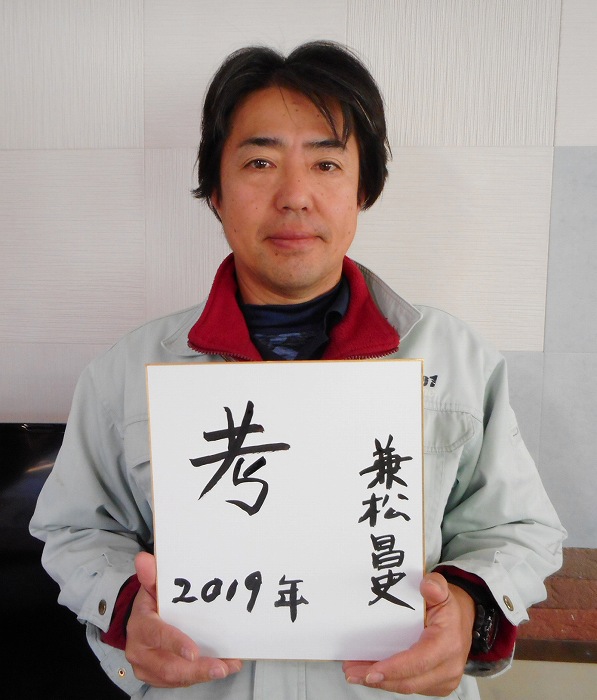 考
2019年
兼松昌史